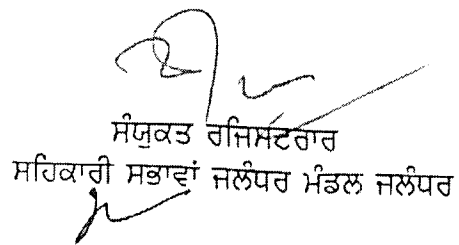 ਸੰਯੁਕਤ ਰਜਿਸਟਰਾਰ
ਸਹਿਕਾਰੀ ਸਭਾਵਾਂ ਜਲੰਧਰ ਮੰਡਲ ਜਲੰਧਰ